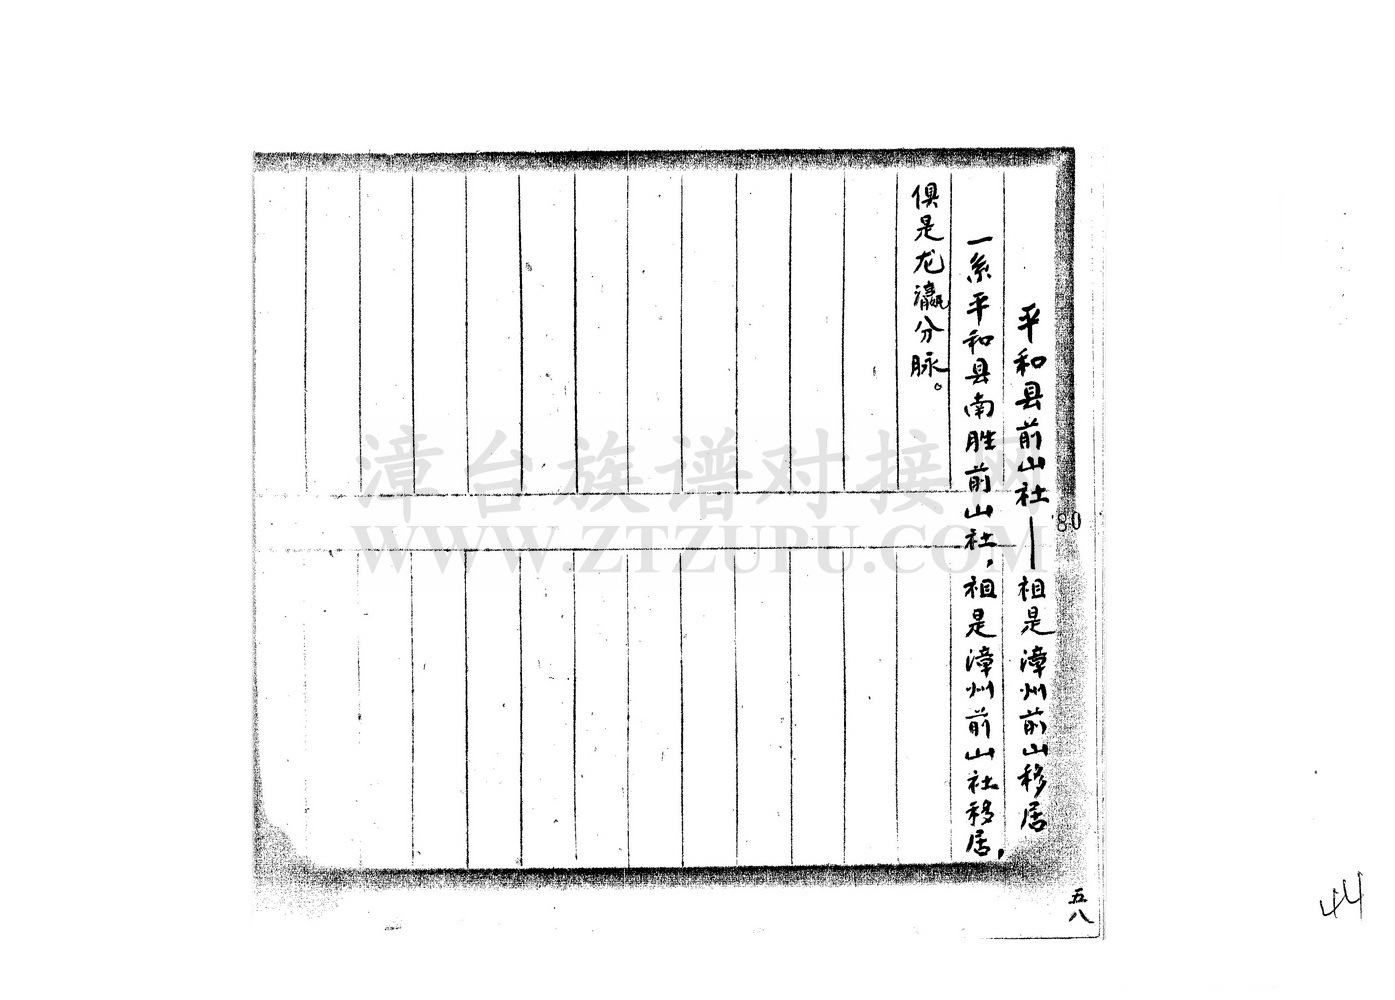 平和县前山社——祖是漳州前山移居
一系平和县南胜前山社，祖是漳州前山社移居，
俱是龙瀛分脉。
80
五八
44
漳台族谱对接网
WWW.ZTZUPU.COM